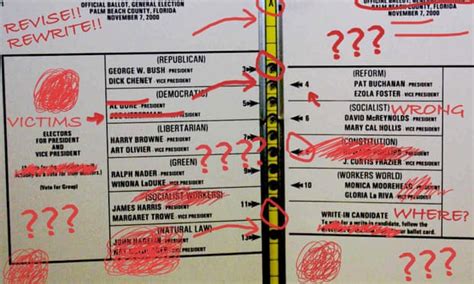 OFFICIAL BALLOT, GENERAL ELECTION
PALM BEACH COUNTY, FLORIDA
NOVEMBER 7, 2000
REVISE!!
REWRITE!!
A
OFFICIAL BALLOT, GENERAL ELECTION
PALM BEACH COUNTY, FLORIDA
NOVEMBER 7, 2000
???
(REPUBLICAN)
GEORGE W. BUSH PRESIDENT
DICK CHENEY VICE PRESIDENT
3
(DEMOCRATIC)
AL GORE PRESIDENT
JOE LIEBERMAN VICE PRESIDENT
5
(LIBERTARIAN)
HARRY BROWNE PRESIDENT
ART OLIVIER VICE PRESIDENT
7
(GREEN)
RALPH NADER PRESIDENT
WINONA LaDUKE VICE PRESIDENT
9
(SOCIALIST WORKERS)
JAMES HARRIS PRESIDENT
MARGARET TROWE VICE PRESIDENT
11
(NATURAL LAW)
JOHN HAGELIN PRESIDENT
VICE PRESIDENT
13
VICTIMS
ELECTORS
FOR PRESIDENT
AND
VICE PRESIDENT
(Vote for Group)
???
????
???
(REFORM)
4 PAT BUCHANAN PRESIDENT
EZOLA FOSTER VICE PRESIDENT
(SOCIALIST)
WRONG
6 DAVID McREYNOLDS PRESIDENT
MARY CAL HOLLIS VICE PRESIDENT
(CONSTITUTION)
PRESIDENT
J. CURTIS FRAZIER VICE PRESIDENT
(WORKERS WORLD)
10 MONICA MOOREHEAD PRESIDENT
GLORIA La RIVA VICE PRESIDENT
WRITE IN CANDIDATE
WHERE?
To vote for a write-in candidate, follow the
directions on the long stub of your ballot card.
???